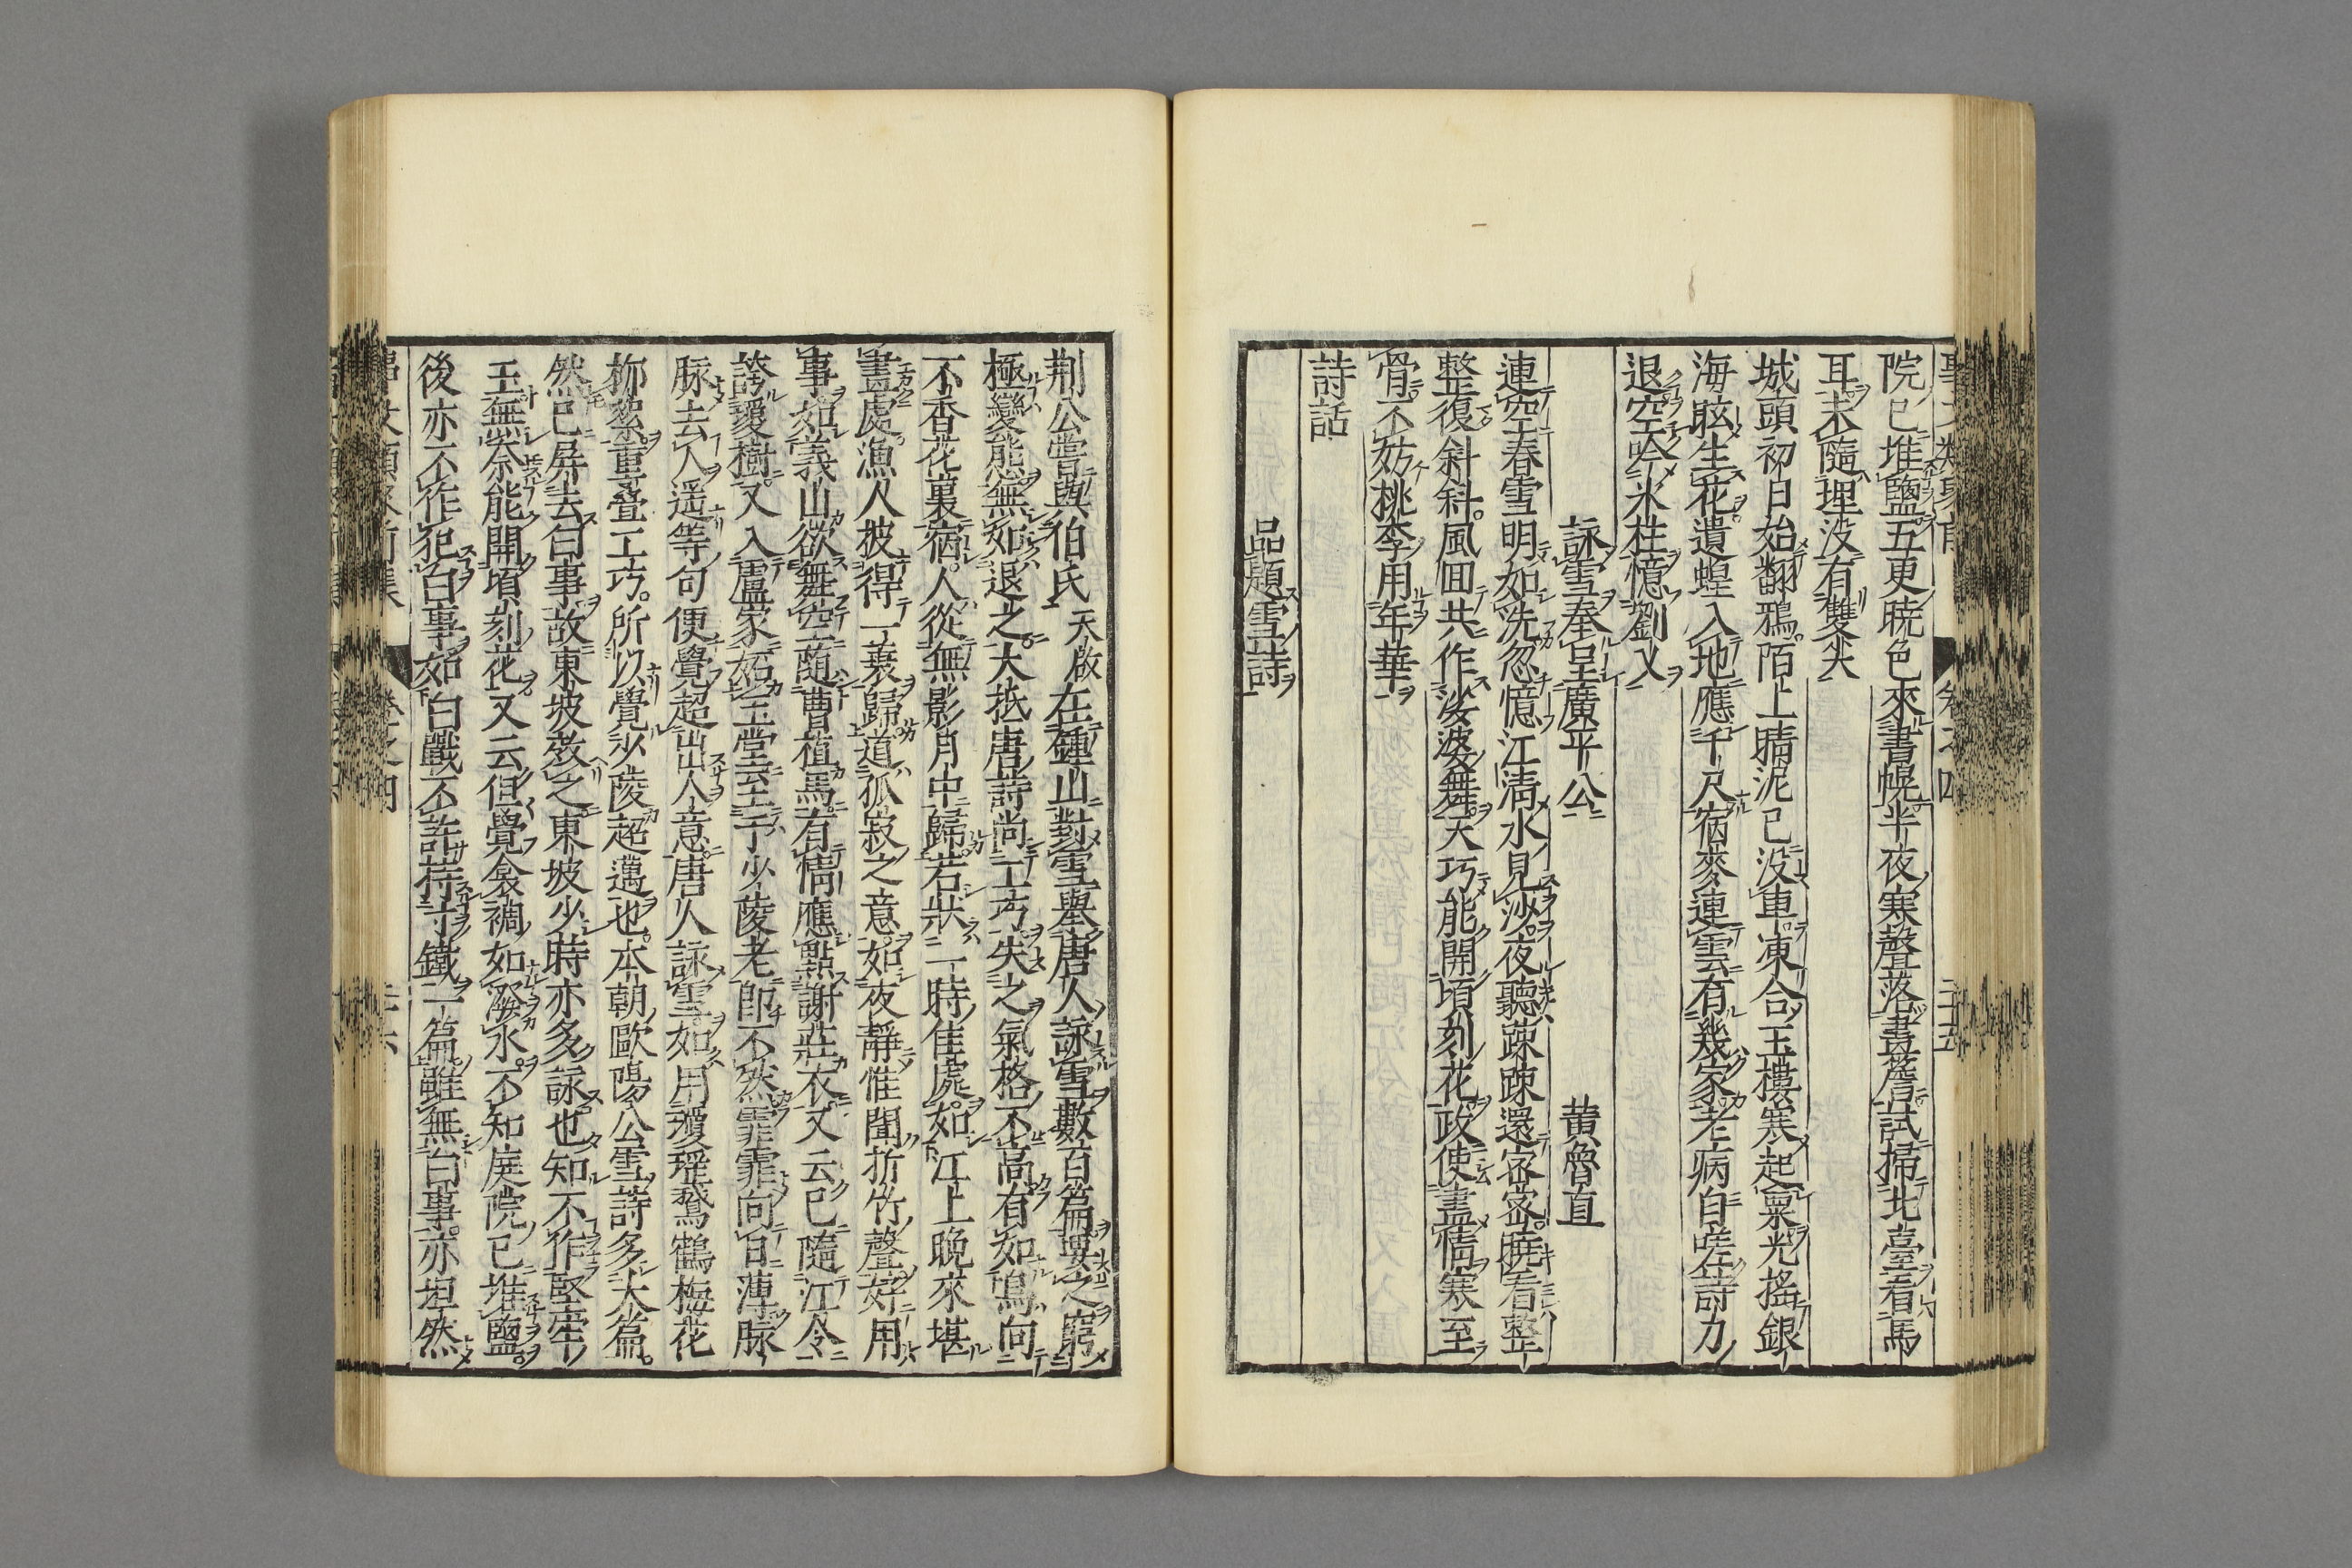 院已堆鹽五更曉色來書幌半夜寒聲落畫簷試掃北臺看馬
耳未隨埋没有雙尖
城頭初日始翻鴉陌上晴泥已没車凍合玉樓寒起粟光搖銀
海眩生花遺蝗入地應千尺宿麥連雲有幾家老病自嗟詩力
退空吟氷柱憶劉乂
詠雪奉呈廣平公　黄魯直
連空春雪明如洗忽憶江清水見沙夜聽疎疎還密密曉看整
整復斜斜風回共作婆娑舞天巧能開頃刻花政使盡情寒至
骨不妨桃李用年華
詩話
品題雪詩
荆公嘗與伯氏天啟在鍾山對雪舉唐人詠雪數百篇要之窮
極變態無如退之大抵唐詩尚工巧失之氣格不高有如鳥向
不香花裏宿人從無影月中歸若狀一時佳處如江上晚來堪
畫處漁人披得一蓑歸道孤寂之意如夜靜惟聞折竹聲好用
事如義山欲舞定隨曹植馬有情應點謝莊衣又云已隨江令
誇瓊樹又入盧家妬玉堂云至于少陵老郎不然霏霏向日薄脉
脉去人遥等句便覺超出人意唐人詠雪如用瓊瑶鵞鶴梅花
柳絮重叠工巧所以覺少陵超邁也本朝歐陽公雪詩多大篇
然已屏去白事故東坡效之東坡少時亦多詠也知不作堅牢
玉無奈能開頃刻花又云但覺衾裯如潑水不知庭院已堆鹽
後亦不作犯白事如白戰不許持寸鐵一篇雖無白事亦坦然